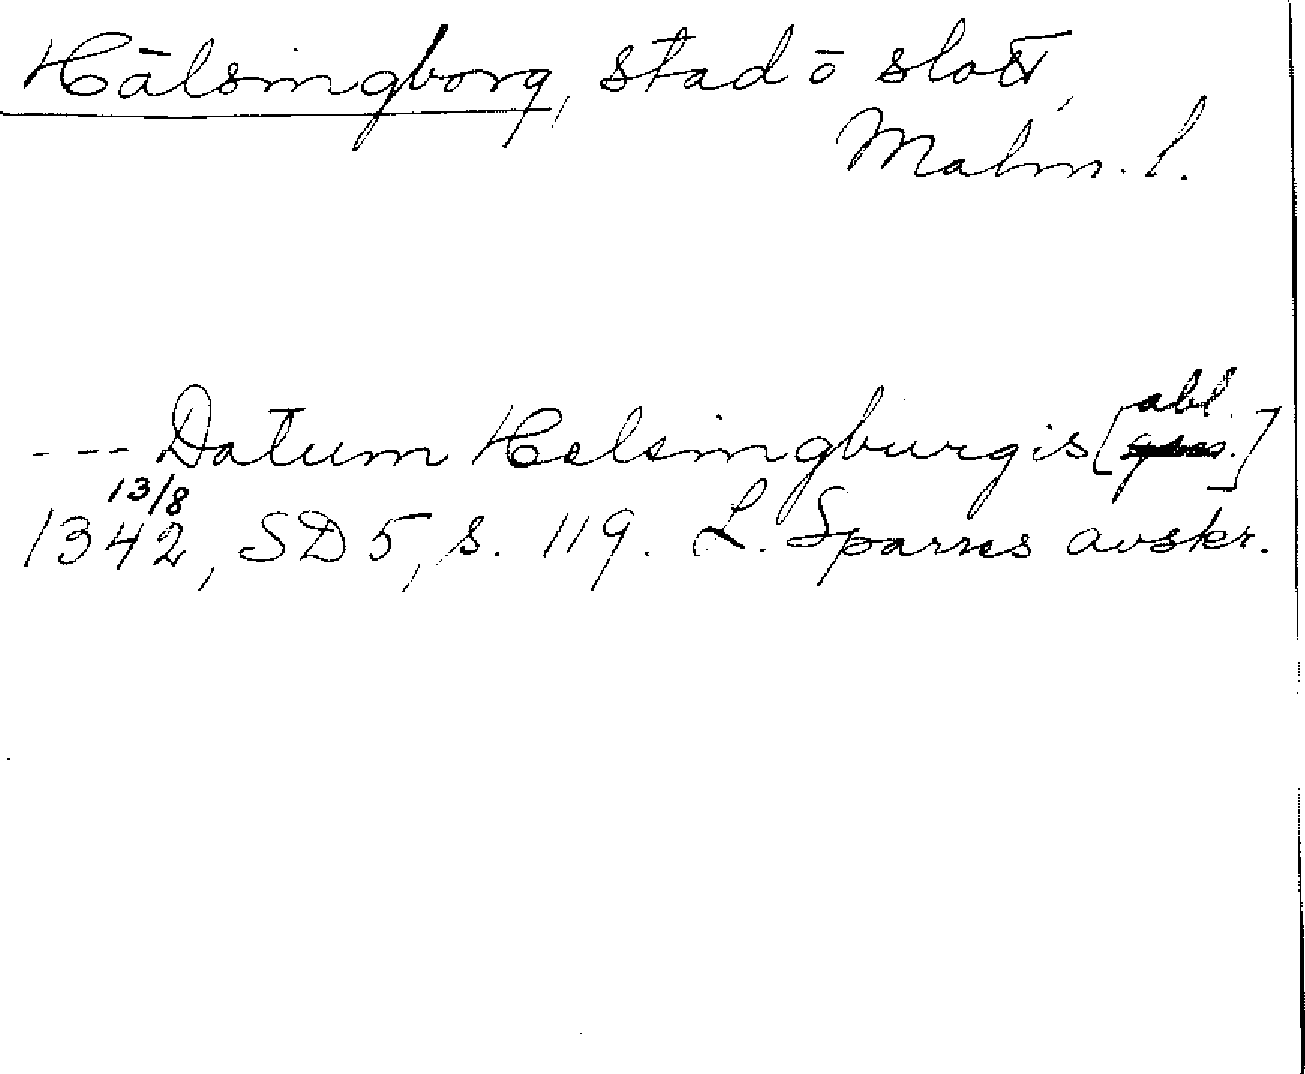 Hälsingborg, stad o slott,
Malm. l.
--- Datum Helsingburgis [abl.]
13/8
1342, SD 5, s. 119. L. Sparres avskr.